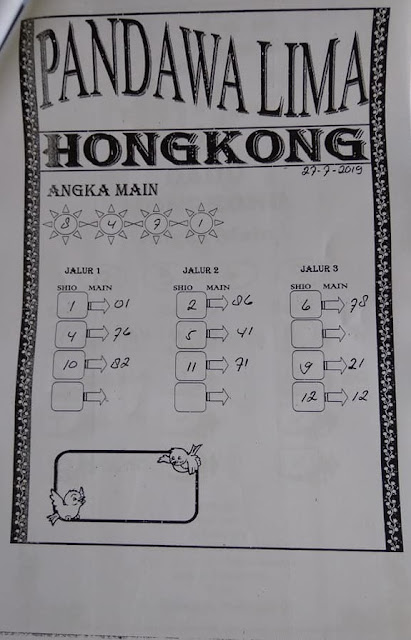 PANDAWA LIMA
HONGKONG
27-7-2019
ANGKA MAIN
8 4 7 1
JALUR 1 JALUR 2 JALUR 3
SHIO MAIN SHIO MAIN SHIO MAIN
1 01 2 86 6 78
4 76 5 41
10 82 11 71 9 21
12 12